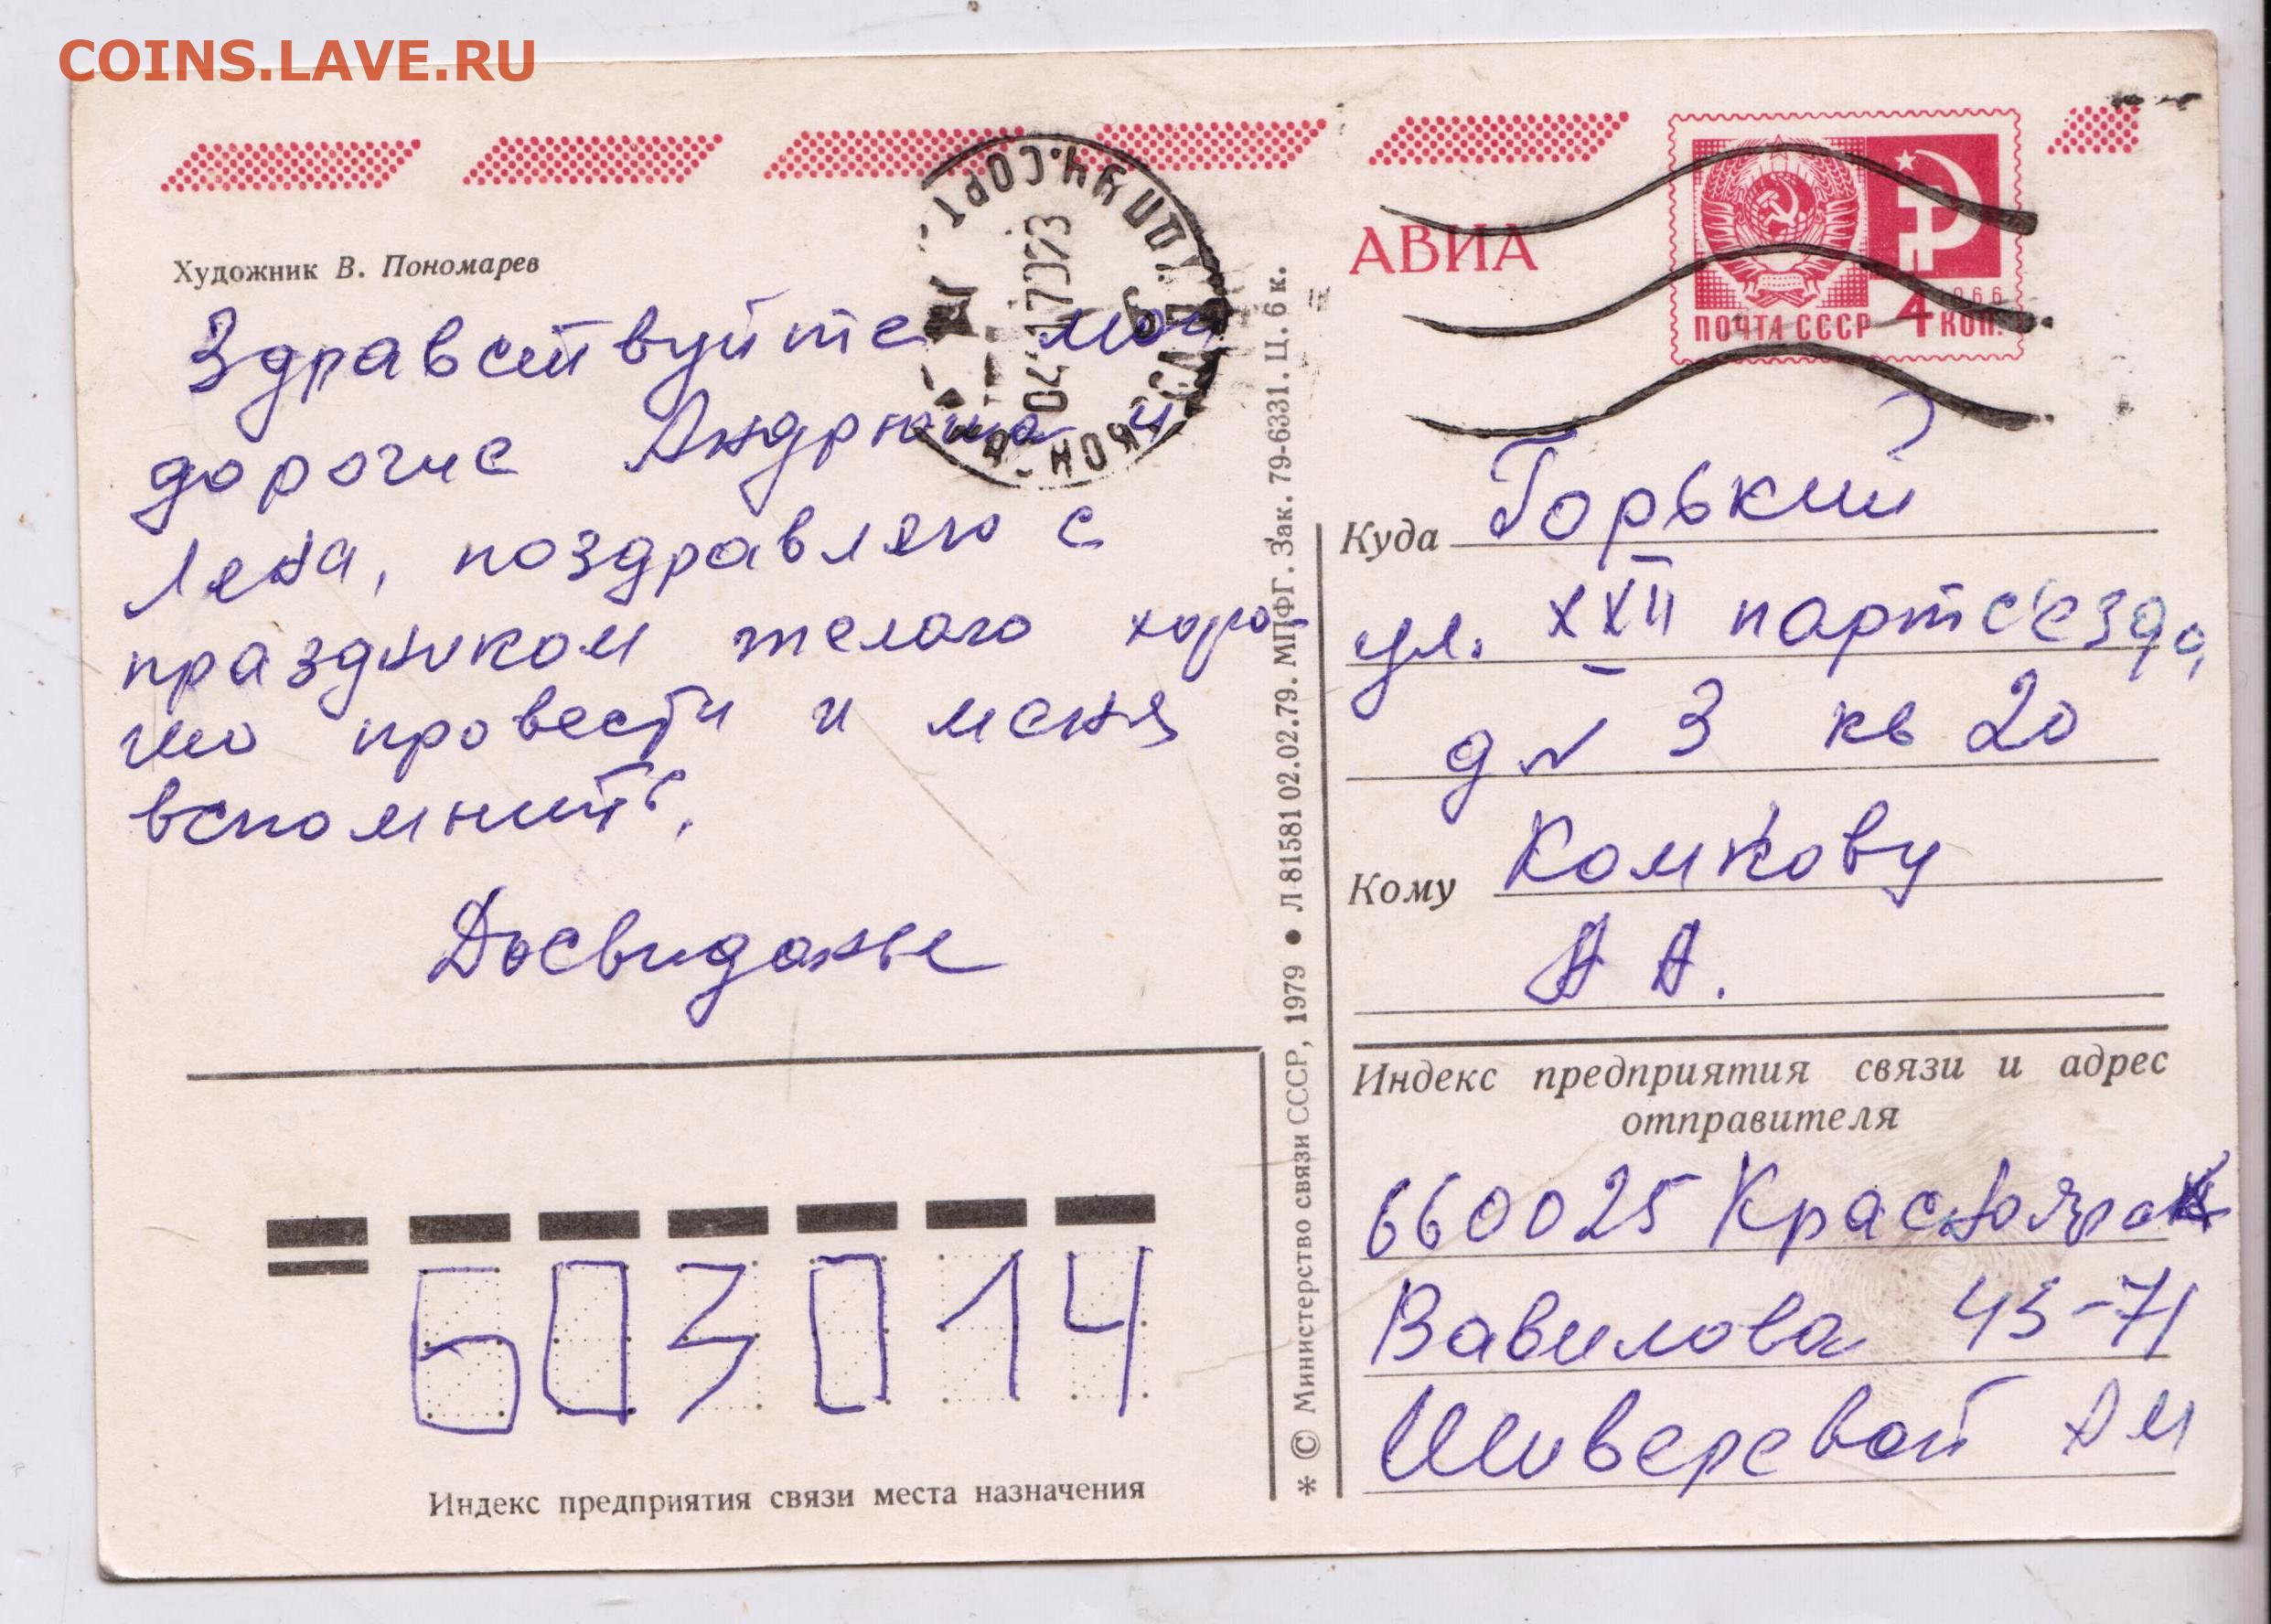 COINS.LAVE.RU
Художник В. Пономарев
Здравствуйте мои
дорогие Андрюша и
Лена, поздравляю с
праздником желаю хоро-
шо провести и меня
вспомнить.
Досвиданье
Индекс предприятия связи места назначения
603014
* © Министерство связи СССР, 1979 ● Л 81581 02.02.79. МПФГ. Зак. 79-6331. Ц. 6 к.
АВИА
ПОЧТА СССР 4 КОП.
1966
Куда Горький
ул. XXII партс'езда,
д N 3 кв 20
Кому Комкову
А А.
Индекс предприятия связи и адрес
отправителя
660025 Краснояр
Вавилова 43-71
Шиверевой А М